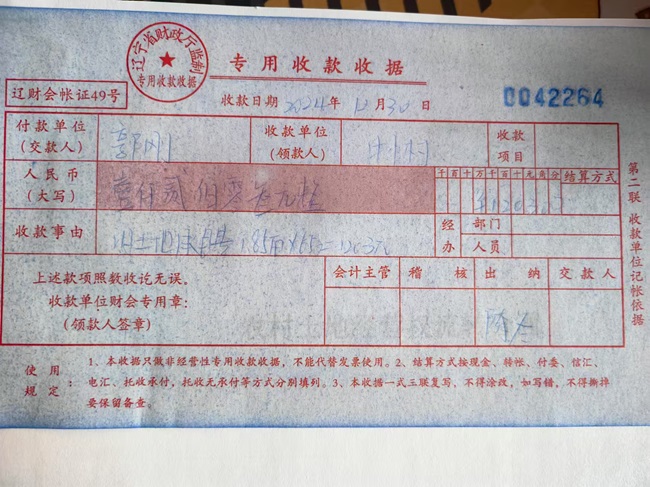 辽宁省财政厅监制
专用收款收据
专用收款收据
辽财会帐证49号
收款日期 2024年 12月30日
0042264
付款单位
(交款人)
郭刚
收款单位
(领款人)
收款
项目
人民币
(大写)
壹仟贰佰零叁元
千百十万千百十元角分
结算方式
收款事由
经 部门
办 人员
上述款项照数收讫无误。
收款单位财会专用章:
(领款人签章)
会计主管 稽核 出纳 交款人
第二联 收款单位记帐依据
使用
规定:
1、本收据只做非经营性专用收款收据,不能代替发票使用。2、结算方式按现金、转帐、付委、信汇、
电汇、托收承付,托收无承付等方式分别填列。3、本收据一式三联复写、不得涂改,如写错,不得撕掉
要保留备查。